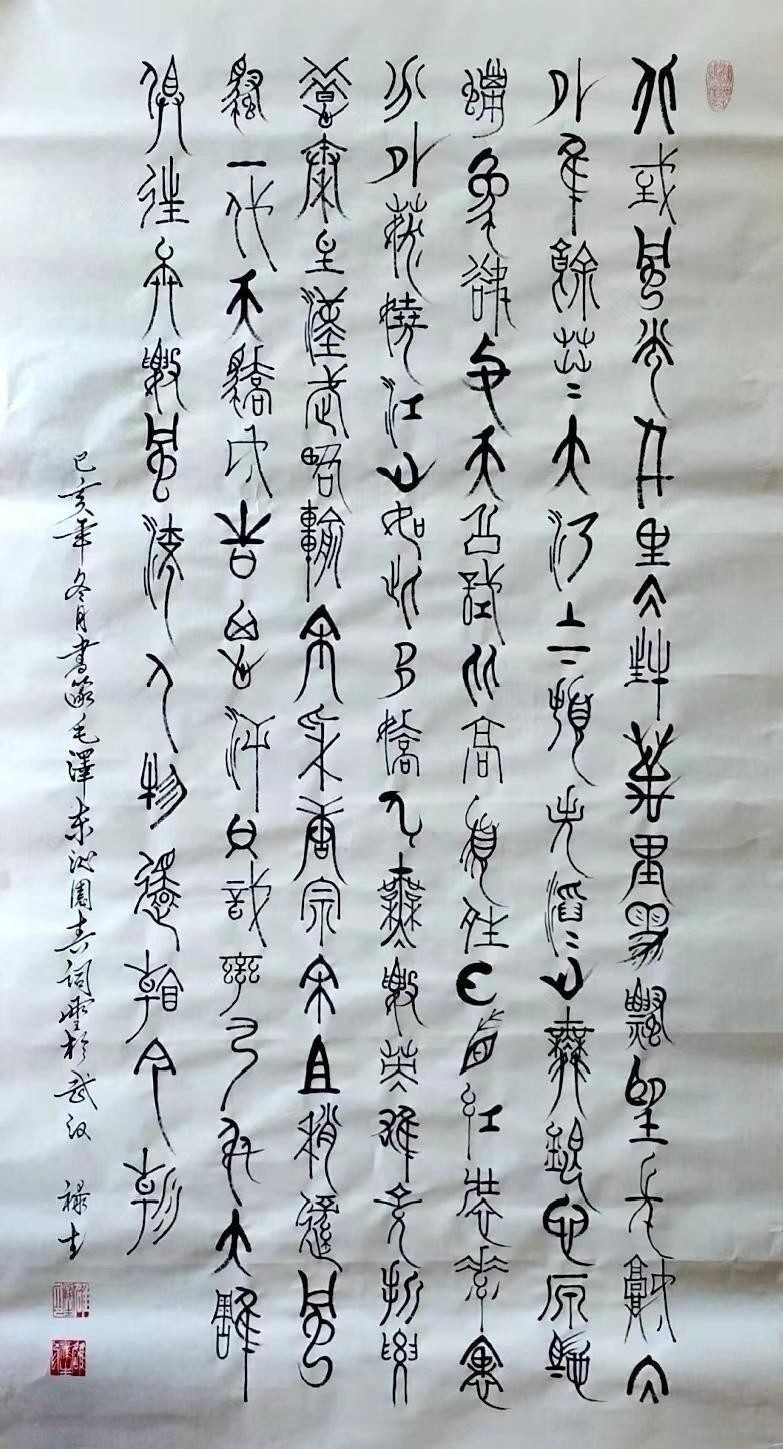 北或風光千里冰封萬里雪飄望長城內
外隹餘莽〻大河上下頓失滔〻山舞銀蛇原馳
蠟象欲與天公試比高須晴日看紅裝素裹
分外妖嬈江山如此多嬌引無數英雄竞折腰
惜秦皇漢武略輸文采唐宗宋且稍遜風
騷一代天驕成吉思汗只識彎弓射大雕
俱往矣數風流人物還看今朝
己亥年冬月書篆毛澤东沁園春词雪於武汉